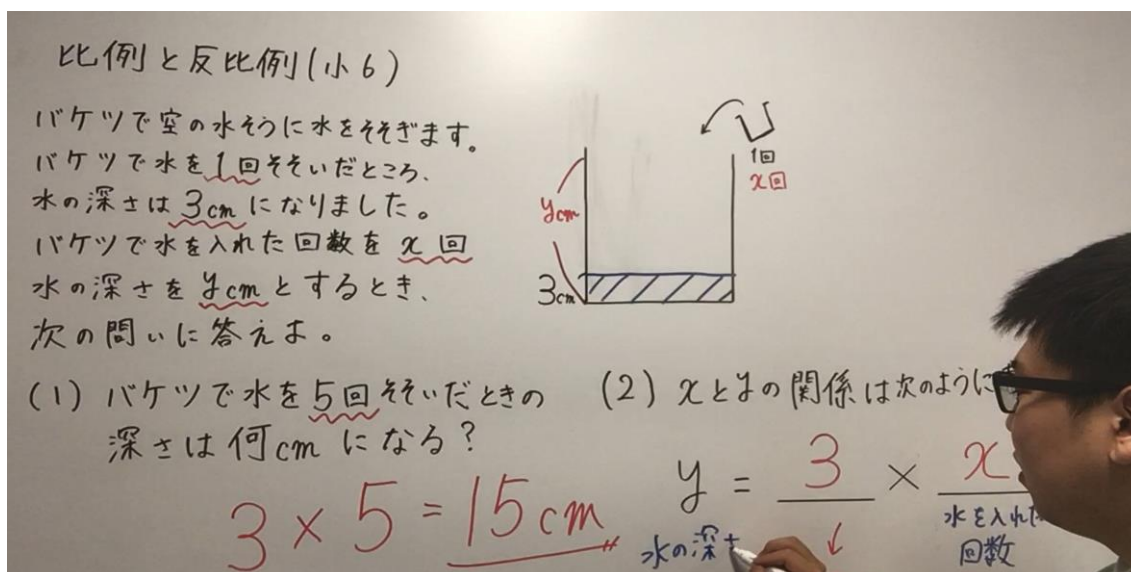 比例と反比例(小6)
バケツで空の水そうに水をそそぎます。
バケツで水を1回そそいだところ、
水の深さは3cmになりました。
バケツで水を入れた回数をx回
水の深さをycmとするとき、
次の問いに答えよ。
1回
x回
ycm
3cm
(1) バケツで水を5回そそいだときの
深さは何cmになる?
3×5=15cm
(2) xとyの関係は次のように
y = 3 × x
水の深さ
水を入れた
回数